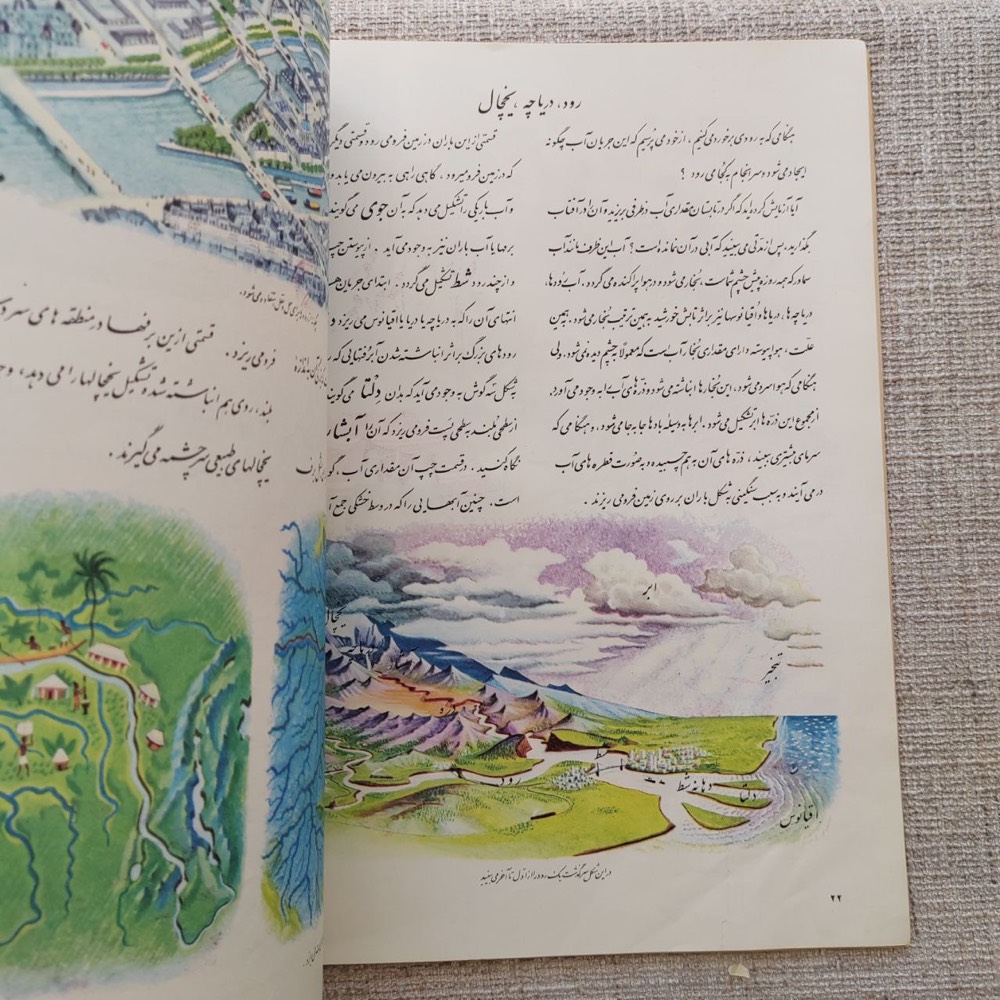 رود، دریاچه، یخچال
هنگامی که به رودی برخورد می‌کنیم، از خود می‌پرسیم که این جریان آب چگونه
ایجاد می‌شود و سرانجام به کجا می‌رود ؟
آیا آزمایش کرده‌اید که اگر در تابستان مقداری آب در ظرفی بریزید و آن را در آفتاب
بگذارید، پس از مدتی می‌بینید که آبی در آن نمانده است ؟ آب این ظرف مانند آب
سماور که همه روزه پیش چشم شماست، بخاری شود و در هوا پراکنده می‌گردد. آب رودها،
دریاچه‌ها، دریاها و اقیانوسها نیز بر اثر تابش خورشید به همین ترتیب بخار می‌شود. بهمین
علت، هوا پیوسته دارای مقداری بخار آب است که معمولاً به چشم دیده نمی‌شود. ولی
هنگامی که هوا سرد می‌شود، این بخارها انباشته می‌شود و ذره‌های آب به وجود می‌آورد.
از مجموع این ذره‌ها ابر تشکیل می‌شود. ابرها به وسیله بادها جا به جا می‌شود، و هنگامی که
سرمای بیشتری ببیند، ذره‌های آن به هم چسبیده و به صورت قطره‌های آب
در می‌آیند و به سبب سنگینی به شکل باران بر روی زمین فرو می‌ریزند .
قسمتی از این باران در زمین فرو می‌رود و قسمتی
که در زمین فرو میرود، گاهی راهی به بیرون می‌یابد
و آب باریکی را تشکیل می‌دهد که به آن جوی می‌گویند
برفها یا آب باران نیز به وجود می‌آید . از پیوستن
و از چند رود شط تشکیل می‌گردد . ابتدای جریان
انتهای آن را که به دریاچه یا دریا یا اقیانوس می‌ریزد
رودهای بزرگ بر اثر انباشته شدن آبرفتهایی که
به شکل سه گوش به وجود می‌آید که بدان دلتا می‌گویند
از سطحی بلند به سطحی پست فرو می‌ریزد که آن را آبشار
نگاه کنید . در قسمت چپ آن مقداری آب
است . چنین آبهایی را که در وسط خشکی جمع
ابر
یخچال
تبخیر
آبشار
دره
رود
شط
دهانه شط
دلتا
اقیانوس
در این شکل سرگذشت یک رود را از اول تا آخر می‌بینید
۲۲
قسمتی از این برفها در منطقه‌های
فرو می‌ریزد .
بلند، روی هم انباشته شده تشکیل یخچالها را می دهید،
یخچالهای طبیعی سرچشمه می گیرند .